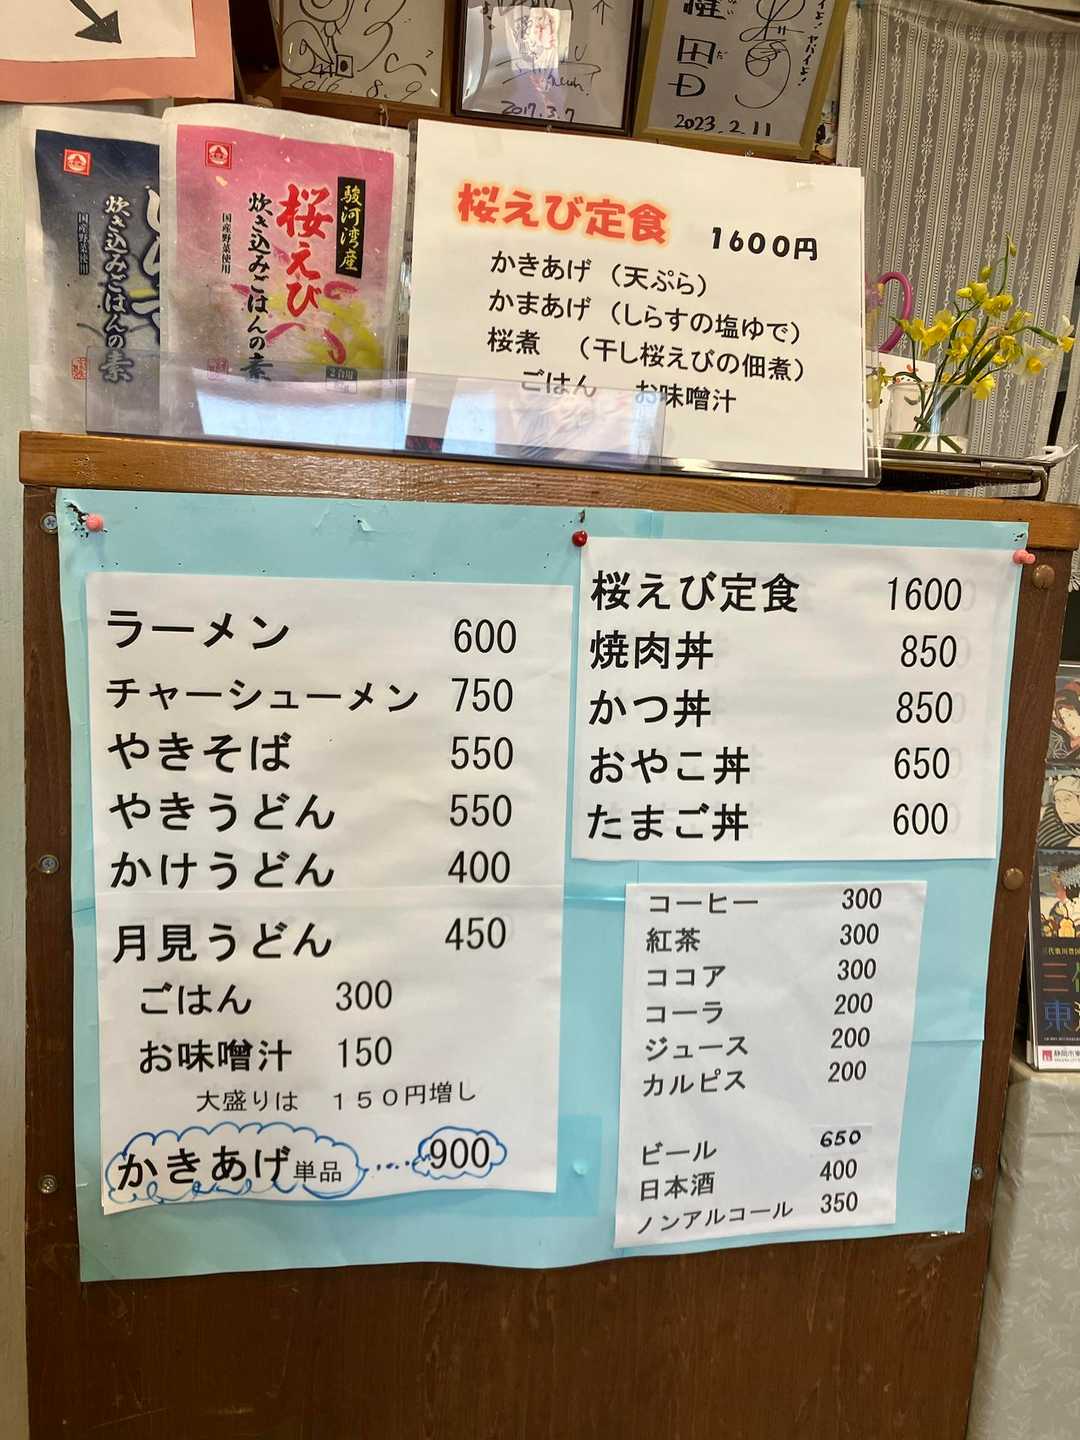 2016.8.9
2017.3.7
2023.2.11
炊き込みごはんの素
国産野菜使用
駿河湾産
桜えび
炊き込みごはんの素
国産野菜使用
桜えび定食 1600円
かきあげ (天ぷら)
かまあげ (しらすの塩ゆで)
桜煮 (干し桜えびの佃煮)
ごはん お味噌汁
ラーメン 600
チャーシューメン 750
やきそば 550
やきうどん 550
かけうどん 400
月見うどん 450
ごはん 300
お味噌汁 150
大盛りは 150円増し
かきあげ単品‥‥900
桜えび定食 1600
焼肉丼 850
かつ丼 850
おやこ丼 650
たまご丼 600
コーヒー 300
紅茶 300
ココア 300
コーラ 200
ジュース 200
カルピス 200
ビール 650
日本酒 400
ノンアルコール 350